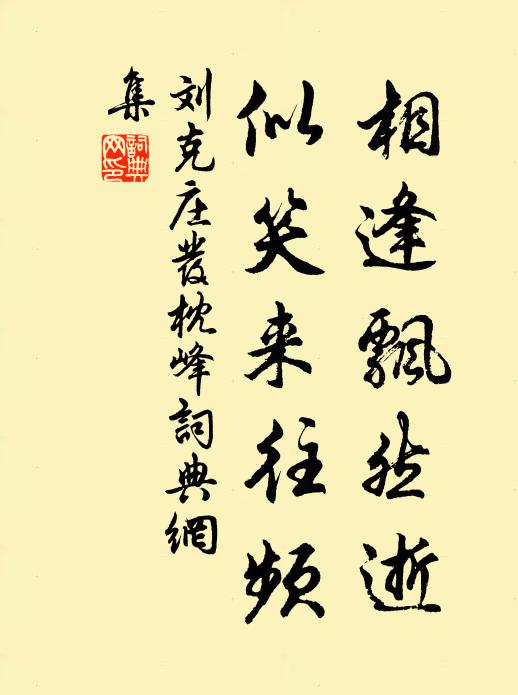 相逢飘然逝
似笑来往频
刘克庄發枕峰詞典網
集
詞典網印